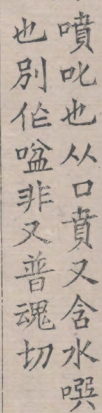 噴吒也从口賁又含水噀
也別作㖹非又普魂切